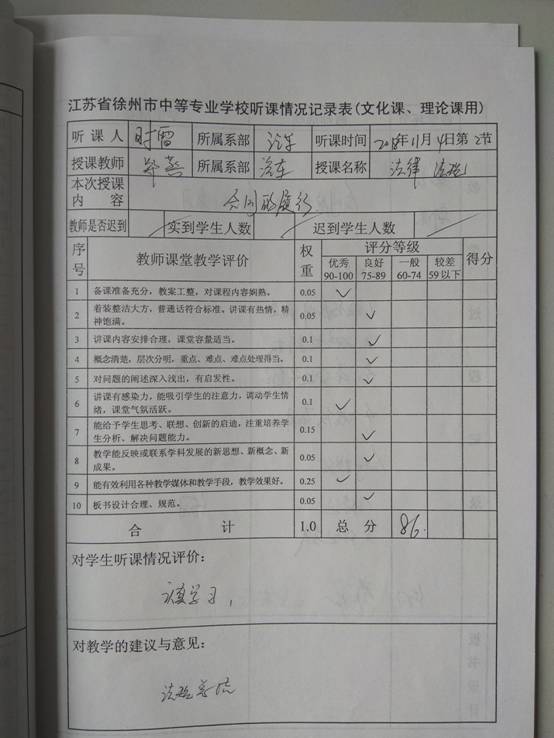 江苏省徐州市中等专业学校听课情况记录表(文化课、理论课用)
听 课 人 时雷 所属系部 汽车 听课时间 2018年11月4日第2节
授课教师 所属系部 汽车 授课名称 法律
本次授课内 容 合同的履行
教师是否迟到 实到学生人数 迟到学生人数
序号 教师课堂教学评价 权重 评分等级 得分
优秀 90-100 良好 75-89 一般 60-74 较差 59以下
1 备课准备充分，教案工整，对课程内容娴熟。 0.05 ✓
2 着装整洁大方，普通话符合标准。讲课有热情，精神饱满。 0.05 ✓
3 讲课内容安排合理，课堂容量适当。 0.1 ✓
4 概念清楚，层次分明，重点、难点、难点处理得当。 0.1 ✓
5 对问题的阐述深入浅出，有启发性。 0.1 ✓
6 讲课有感染力，能吸引学生的注意力，调动学生情绪，课堂气氛活跃。 0.1 ✓
7 能给予学生思考、联想、创新的启迪，注重培养学生分析、解决问题能力。 0.15 ✓
8 教学能反映或联系学科发展的新思想、新概念、新成果。 0.05 ✓
9 能有效利用各种教学媒体和教学手段，教学效果好。 0.25 ✓
10 板书设计合理、规范。 0.05 ✓
合 计 1.0 总 分 86.
对学生听课情况评价：
认真学习，
对教学的建议与意见：